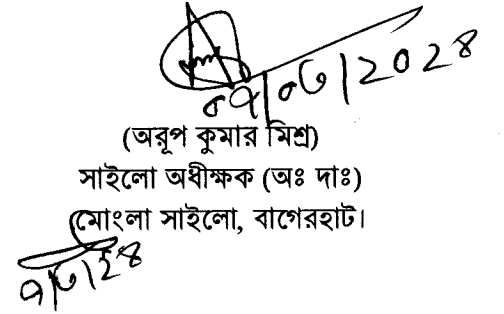 ০৭/০৩/2028
(অরূপ কুমার মিশ্র)
সাইলো অধীক্ষক (অঃ দাঃ)
মোংলা সাইলো, বাগেরহাট।
৭/৩/২৪